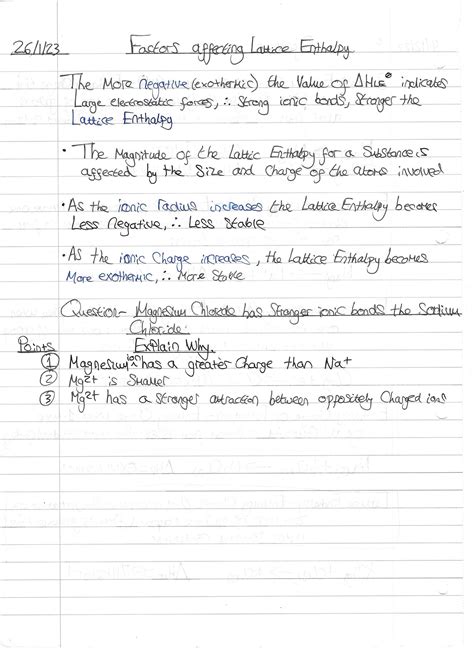 26/1/23 Factors affecting Lattice Enthalpy
The More negative (exothermic) the Value of ΔHLE⊖ indicates
Large electrostatic forces, ∴ Strong ionic bonds, Stronger the
Lattice Enthalpy
• The Magnitude of the Lattic Enthalpy for a Substance is
affected by the Size and Charge of the atoms involved
• As the ionic radius increases the Lattice Enthalpy becomes
Less Negative, ∴ Less Stable
• As the ionic Charge increases, the Lattice Enthalpy becomes
More exothermic, ∴ More Stable
Question- Magnesium Chloride has Stronger ionic bonds the Sodium
Chloride.
Points Explain Why.
① Magnesium ion has a greater Charge than Na+
② Mg2+ is Smaller
③ Mg2+ has a Stronger attraction between oppositely Charged ions